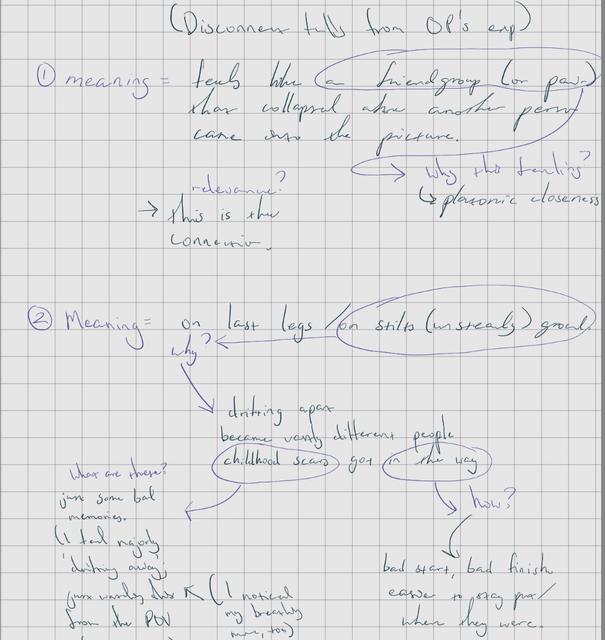 (Disconness fully from OP's exp)
① meaning = feels like a friendgroup (or pair)
that collapsed after another person
came into the picture.
Why this feeling?
↳ platonic closeness
relevance?
→ this is the
connection.
② Meaning = on last legs / on stilts (unsteady) ground.
why?
drifting apart
became vastly different people
childhood scars got in the way
What are these?
just some bad
memories.
how?
(I feel majorly
'drifting away;
bad start, bad finish
easier to stay put/
where they were.
from the POV
(I noticed
my
too)